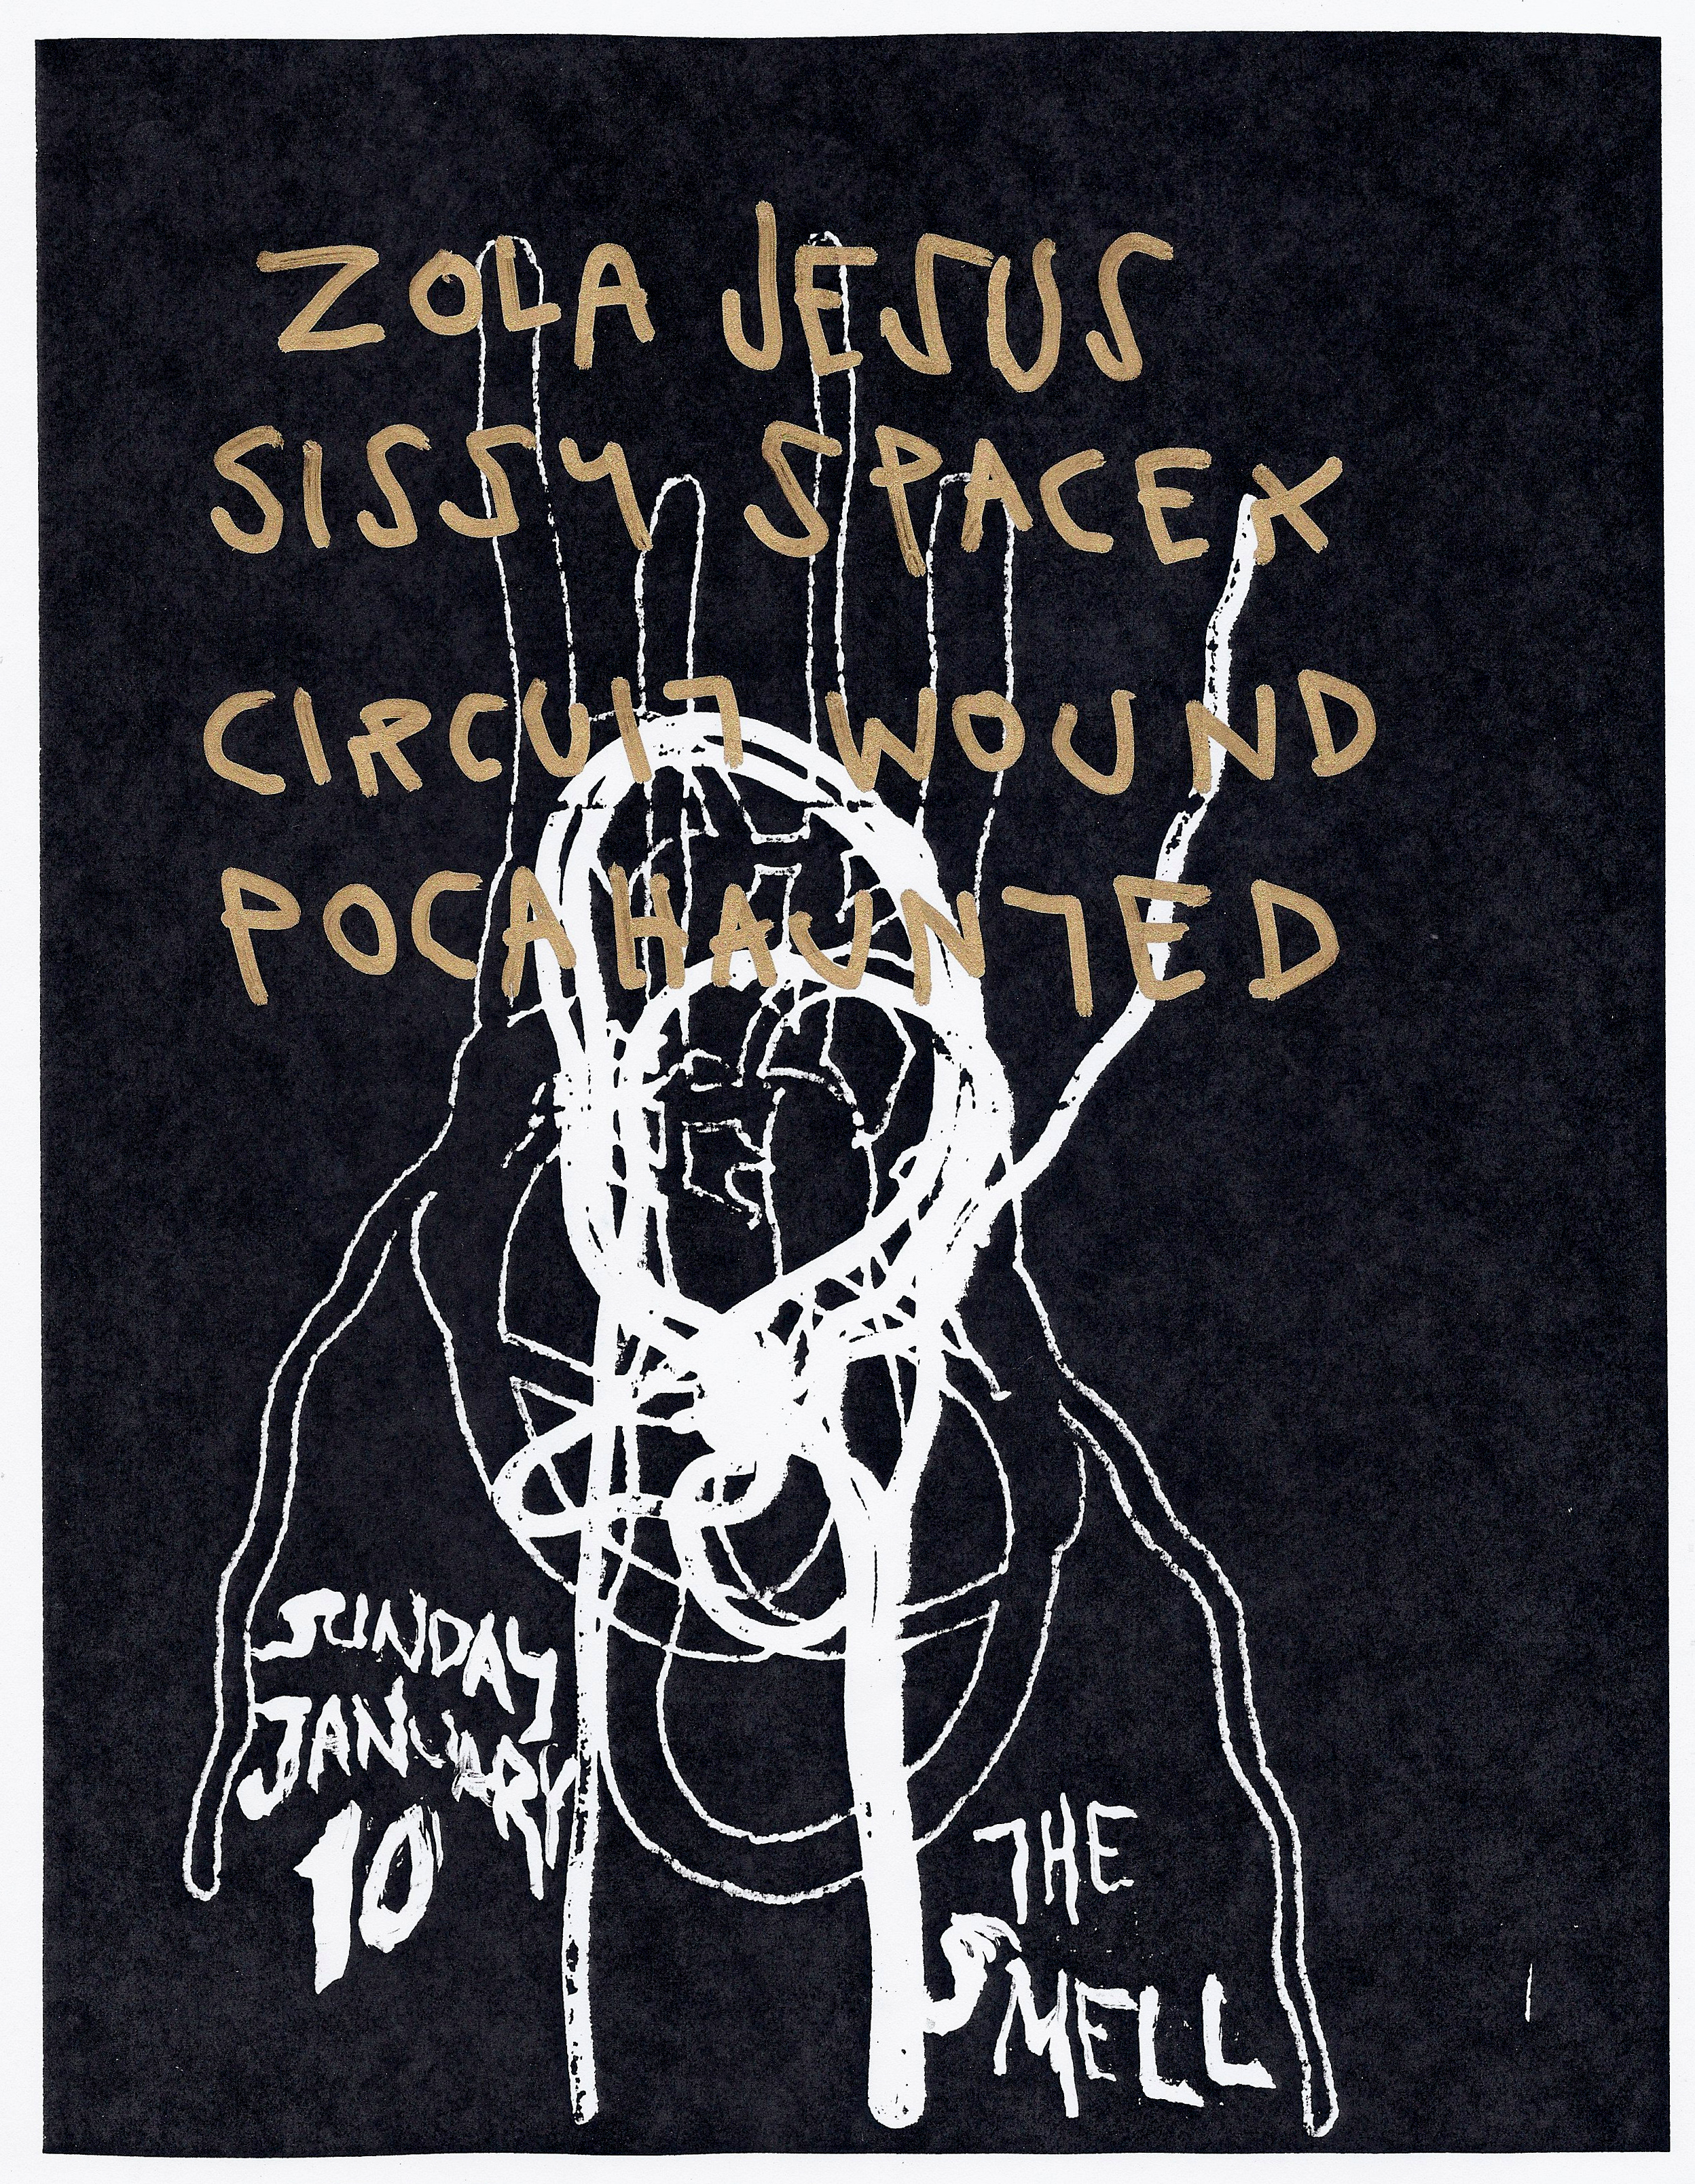 ZOLA JESUS
SISSY SPACEK
CIRCUIT WOUND
POCAHAUNTED
SUNDAY
JANUARY
10
THE
SMELL